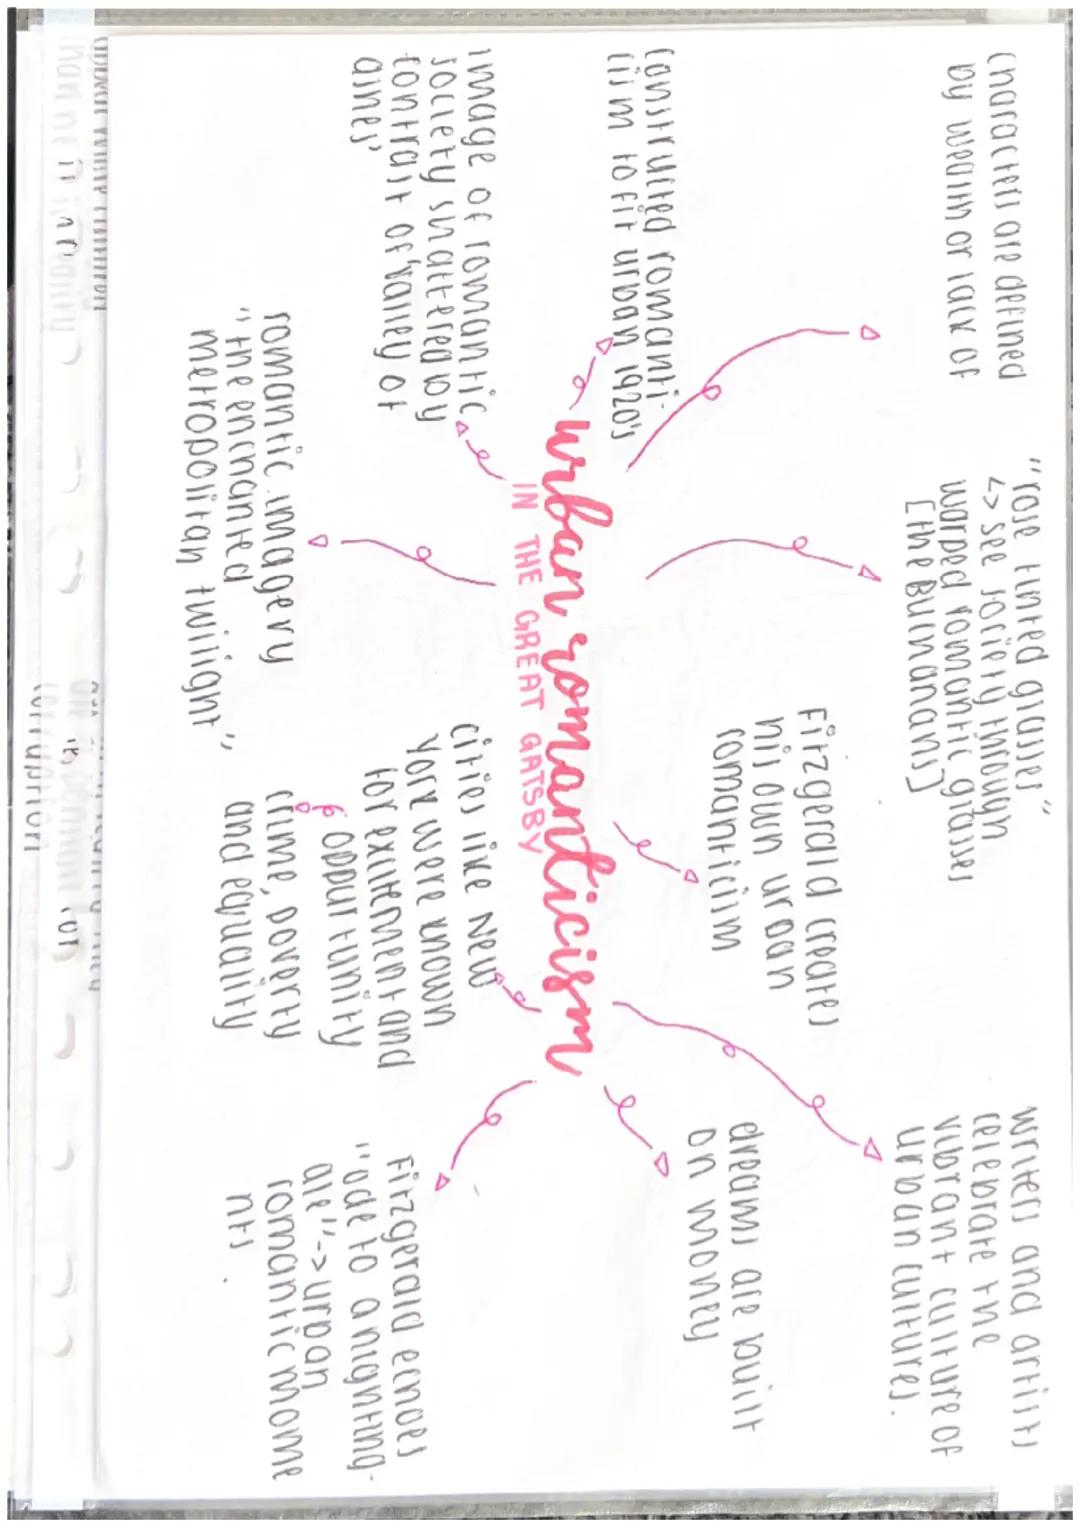 characters are defined
by wealth or lack of
"rose tinted glasses"
↳> see society through
warped romantic glasses
[the Buchanans]
writers and artists
celebrate the
vibrant culture of
urban cultures.
constructed romanti-
cism to fit urban 1920's
Fitzgerald creates
his own urban
romanticism
dreams are built
on money
urban romanticism
IN THE GREAT GATSBY
image of romantic
society shattered by
contrast of 'valley of
ashes'
romantic imagery
"the enchanted
metropolitan twilight"
cities like New
York were known
for exitement and
oppurtunity
crime, poverty
and equality
Fitzgerald echoes
"ode to a nighting-
ale" -> urban
romantic mome
nts.
corruption